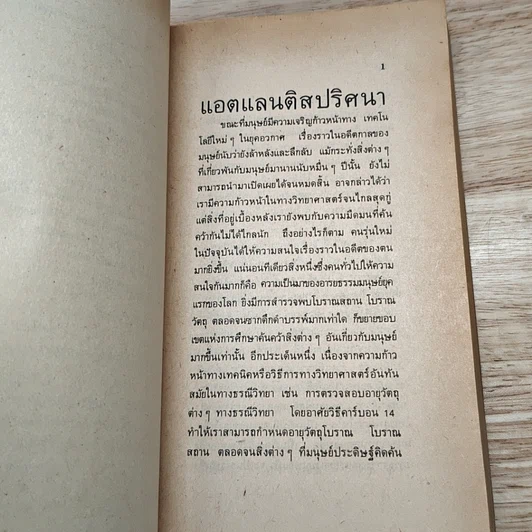 1
แอตแลนติสปริศนา
ขณะที่มนุษย์มีความเจริญก้าวหน้าทาง เทคโน
โลยีใหม่ ๆ ในยุคอวกาศ เรื่องราวในอดีตกาลของ
มนุษย์นับว่ายังล้าหลังและลึกลับ แม้กระทั่งสิ่งต่าง ๆ
ที่เกี่ยวพันกับมนุษย์มานานนับหมื่น ๆ ปีนั้น ยังไม่
สามารถนำมาเปิดเผยได้จนหมดสิ้น อาจกล่าวได้ว่า
เรามีความก้าวหน้าในทางวิทยาศาสตร์จนไกลสุดกู่
แต่สิ่งที่อยู่เบื้องหลังเรายังพบกับความมืดมนที่ค้น
คว้ากันไม่ได้ไกลนัก ถึงอย่างไรก็ตาม คนรุ่นใหม่
ในปัจจุบันได้ให้ความสนใจเรื่องราวในอดีตของตน
มากยิ่งขึ้น แน่นอนทีเดียวสิ่งหนึ่งซึ่งคนทั่วไปให้ความ
สนใจกันมากก็คือ ความเป็นมาของอารยธรรมมนุษย์ยุค
แรกของโลก ยิ่งมีการสำรวจพบโบราณสถาน โบราณ
วัตถุ ตลอดจนซากดึกดำบรรพ์มากเท่าใด ก็ขยายขอบ
เขตแห่งการศึกษาค้นคว้าสิ่งต่าง ๆ อันเกี่ยวกับมนุษย์
มากขึ้นเท่านั้น อีกประเด็นหนึ่ง เนื่องจากความก้าว
หน้าทางเทคนิคหรือวิธีการทางวิทยาศาสตร์อันทัน
สมัยในทางธรณีวิทยา เช่น การตรวจสอบอายุวัตถุ
ต่าง ๆ ทางธรณีวิทยา โดยอาศัยวิธีคาร์บอน 14
ทำให้เราสามารถกำหนดอายุวัตถุโบราณ โบราณ
สถาน ตลอดจนสิ่งต่าง ๆ ที่มนุษย์ประดิษฐ์คิดค้น